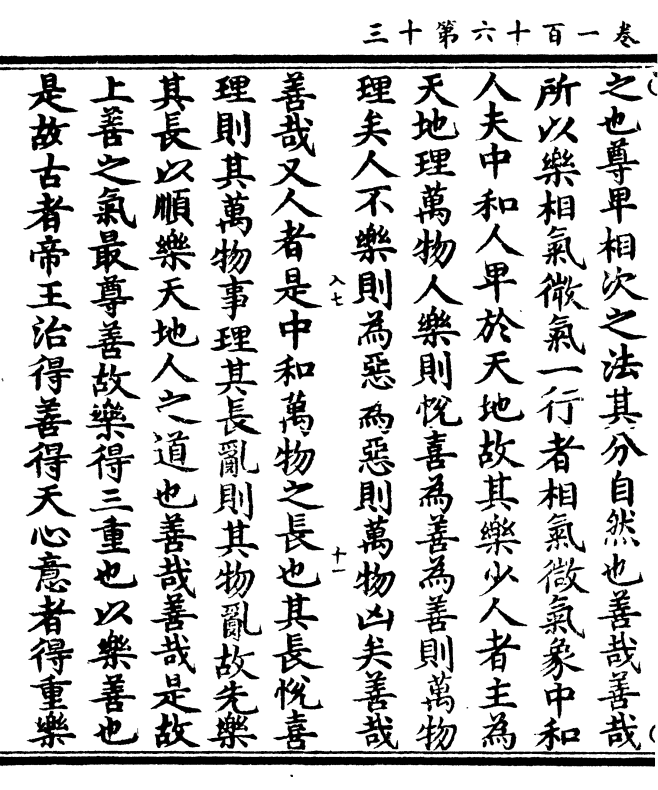 卷一百十六第十三
之也尊卑相次之法其分自然也善哉善哉
所以樂相氣微氣一行者相氣微氣象中和
人夫中和人卑於天地故其樂少人者主為
天地理萬物人樂則悅喜為善為善則萬物
理矣人不樂則為惡為惡則萬物凶矣善哉
入七
十一
善哉又人者是中和萬物之長也其長悅喜
理則其萬物事理其長亂則其物亂故先樂
其長以順樂天地人之道也善哉善哉是故
上善之氣最尊善故樂得三重也以樂善也
是故古者帝王治得善得天心意者得重樂